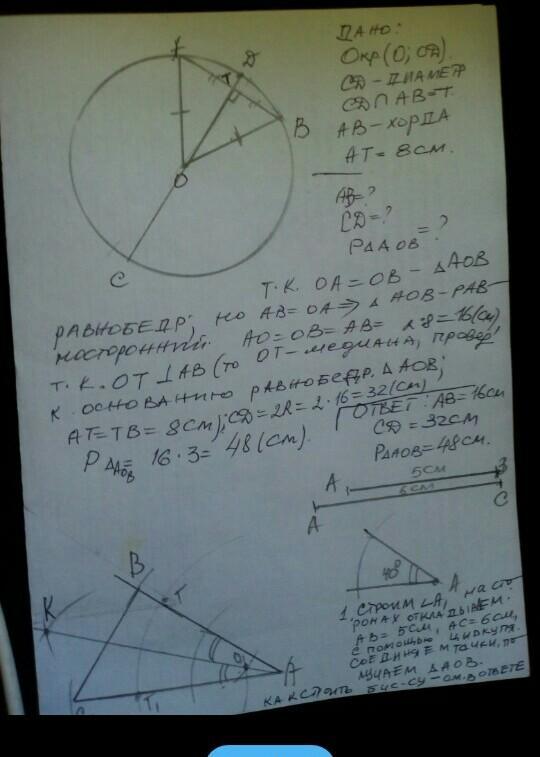 A
D
T
B
O
C
ДАНО:
ОКР(O; CD).
CD - ДИАМЕТР
CD ∩ AB = T.
AB - ХОРДА
AT = 8 СМ.
AB = ?
CD = ?
P△AOB = ?
Т.К. OA = OB - △AOB
РАВНОБЕДР; НО AB = OA ⇒ △ AOB - РАВ-
НОСТОРОННИЙ. AO = OB = AB = 2·8 = 16 (СМ)
Т.К. OT ⊥ AB (ТО OT - МЕДИАНА, ПРОВЕД.
К ОСНОВАНИЮ РАВНОБЕДР. △AOB;
AT = TB = 8 СМ); CD = 2R = 2·16 = 32 (СМ)
P△AOB = 16·3 = 48 (СМ).
ОТВЕТ: AB = 16 СМ
CD = 32 СМ
P△AOB = 48 СМ.
A 5 СМ B
A 6 СМ C
40° A
B
T
K
O
A
T1
1. СТРОИМ ∠A, НА СТО-
РОНАХ ОТКЛАДЫВАЕМ.
AB = 5 СМ, AC = 6 СМ,
С ПОМОЩЬЮ ЦИРКУЛЯ.
СОЕДИНЯЕМ ТОЧКИ, ПО-
ЛУЧАЕМ △AOB.
КАК СТРОИТЬ БИС-СУ - СМ. В ОТВЕТЕ